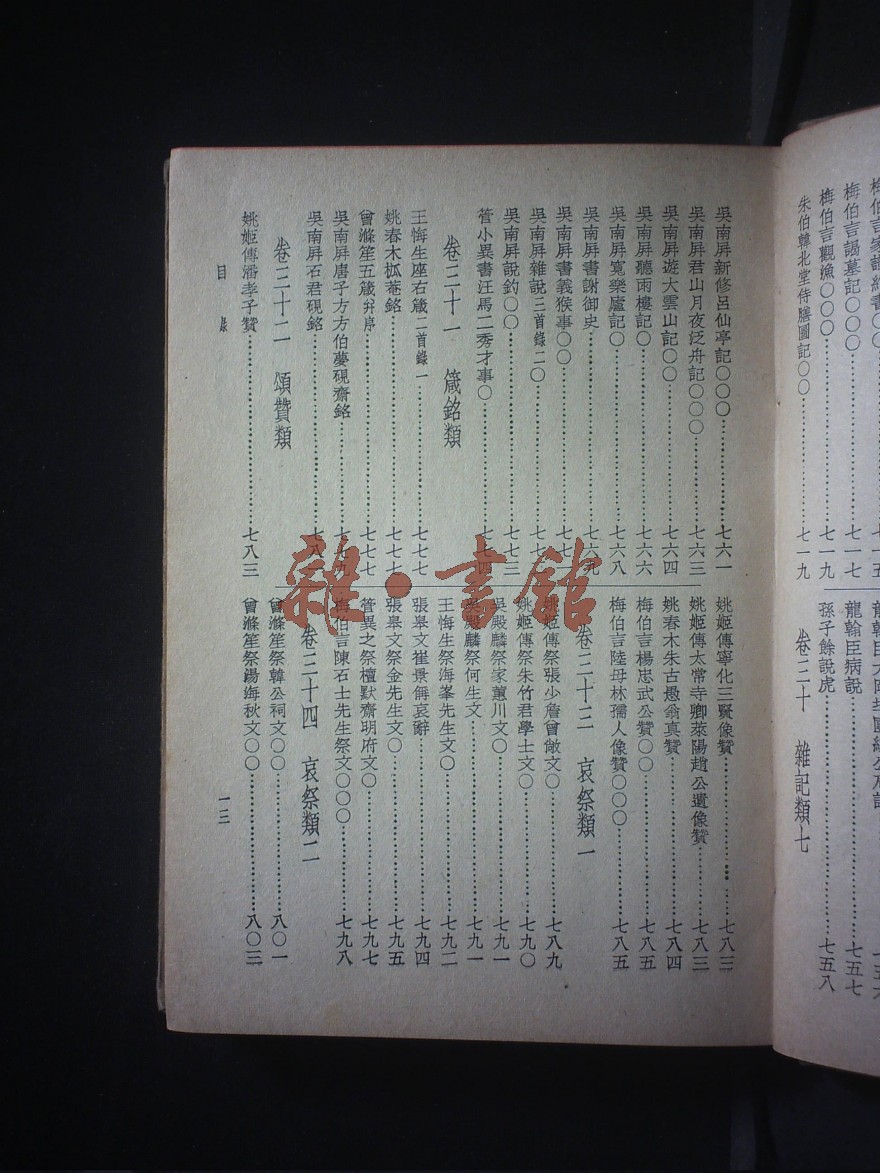 梅伯言謁墓記○○○……七一七
梅伯言觀漁○○○……七一九
朱伯韓北堂侍膳圖記○○……七一九
龍翰臣病說……七五七
孫子餘說虎……七五八
卷三十 雜記類七
吳南屏新修呂仙亭記○○○……七六一
吳南屏君山月夜泛舟記○○○……七六三
吳南屏遊大雲山記○○……七六四
吳南屏聽雨樓記○……七六六
吳南屏寬樂廬記○……七六八
吳南屏書謝御史……七六九
吳南屏書義猴事○○
吳南屏雜說三首錄二○
吳南屏說釣○○……七七三
管小異書汪馬二秀才事○……七七四
卷三十一 箴銘類
王悔生座右箴二首錄一……七七七
姚春木柧菴銘……七七七
曾滌笙五箴并序……七七七
吳南屏唐子方方伯夢硯齋銘……七七九
吳南屏石君硯銘……七八一
卷三十二 頌贊類
姚姬傳潘孝子贊……七八三
姚姬傳寧化三賢像贊……七八三
姚姬傳太常寺卿萊陽趙公遺像贊……七八三
姚春木朱古愚翁真贊……七八四
梅伯言楊忠武公贊○○……七八五
梅伯言陸母林孺人像贊○○○……七八五
卷三十三 哀祭類一
姚姬傳祭張少詹曾敞文○○……七八九
姚姬傳祭朱竹君學士文○……七九〇
吳殿麟祭家蕙川文○○……七九一
吳殿麟祭何生文……七九一
王悔生祭海峯先生文○……七九二
張皋文崔景偁哀辭……七九四
張皋文祭金先生文○……七九五
管異之祭檀默齋明府文○……七九七
梅伯言陳石士先生祭文○○○……七九八
卷三十四 哀祭類二
曾滌笙祭韓公祠文○○……八〇一
曾滌笙祭湯海秋文○○……八〇三
目錄
一三
雜·書館